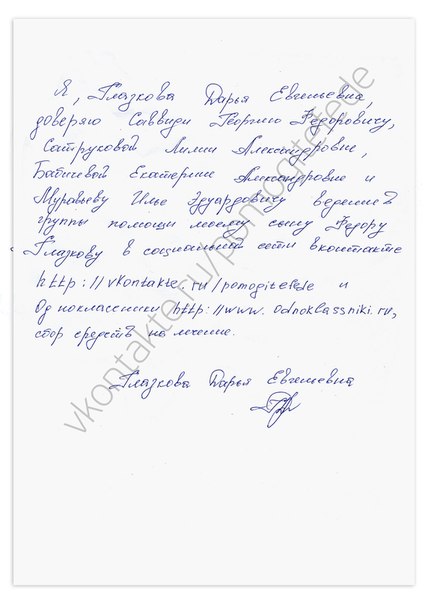 Я, Глазкова Дарья Евгеньевна,
доверяю Саввиди Георгию Федоровичу,
Сатруковой Лилии Александровне,
Батиевой Екатерине Александровне и
Муравьеву Илье Эдуардовичу ведение
группы помощи моему сыну Федору
Глазкову в социальной сети вконтакте
http://vkontakte.ru/pomogitefede и
Одноклассники http://www.odnoklassniki.ru,
сбор средств на лечение.
Глазкова Дарья Евгеньевна
vkontakte.ru/pomogitefede